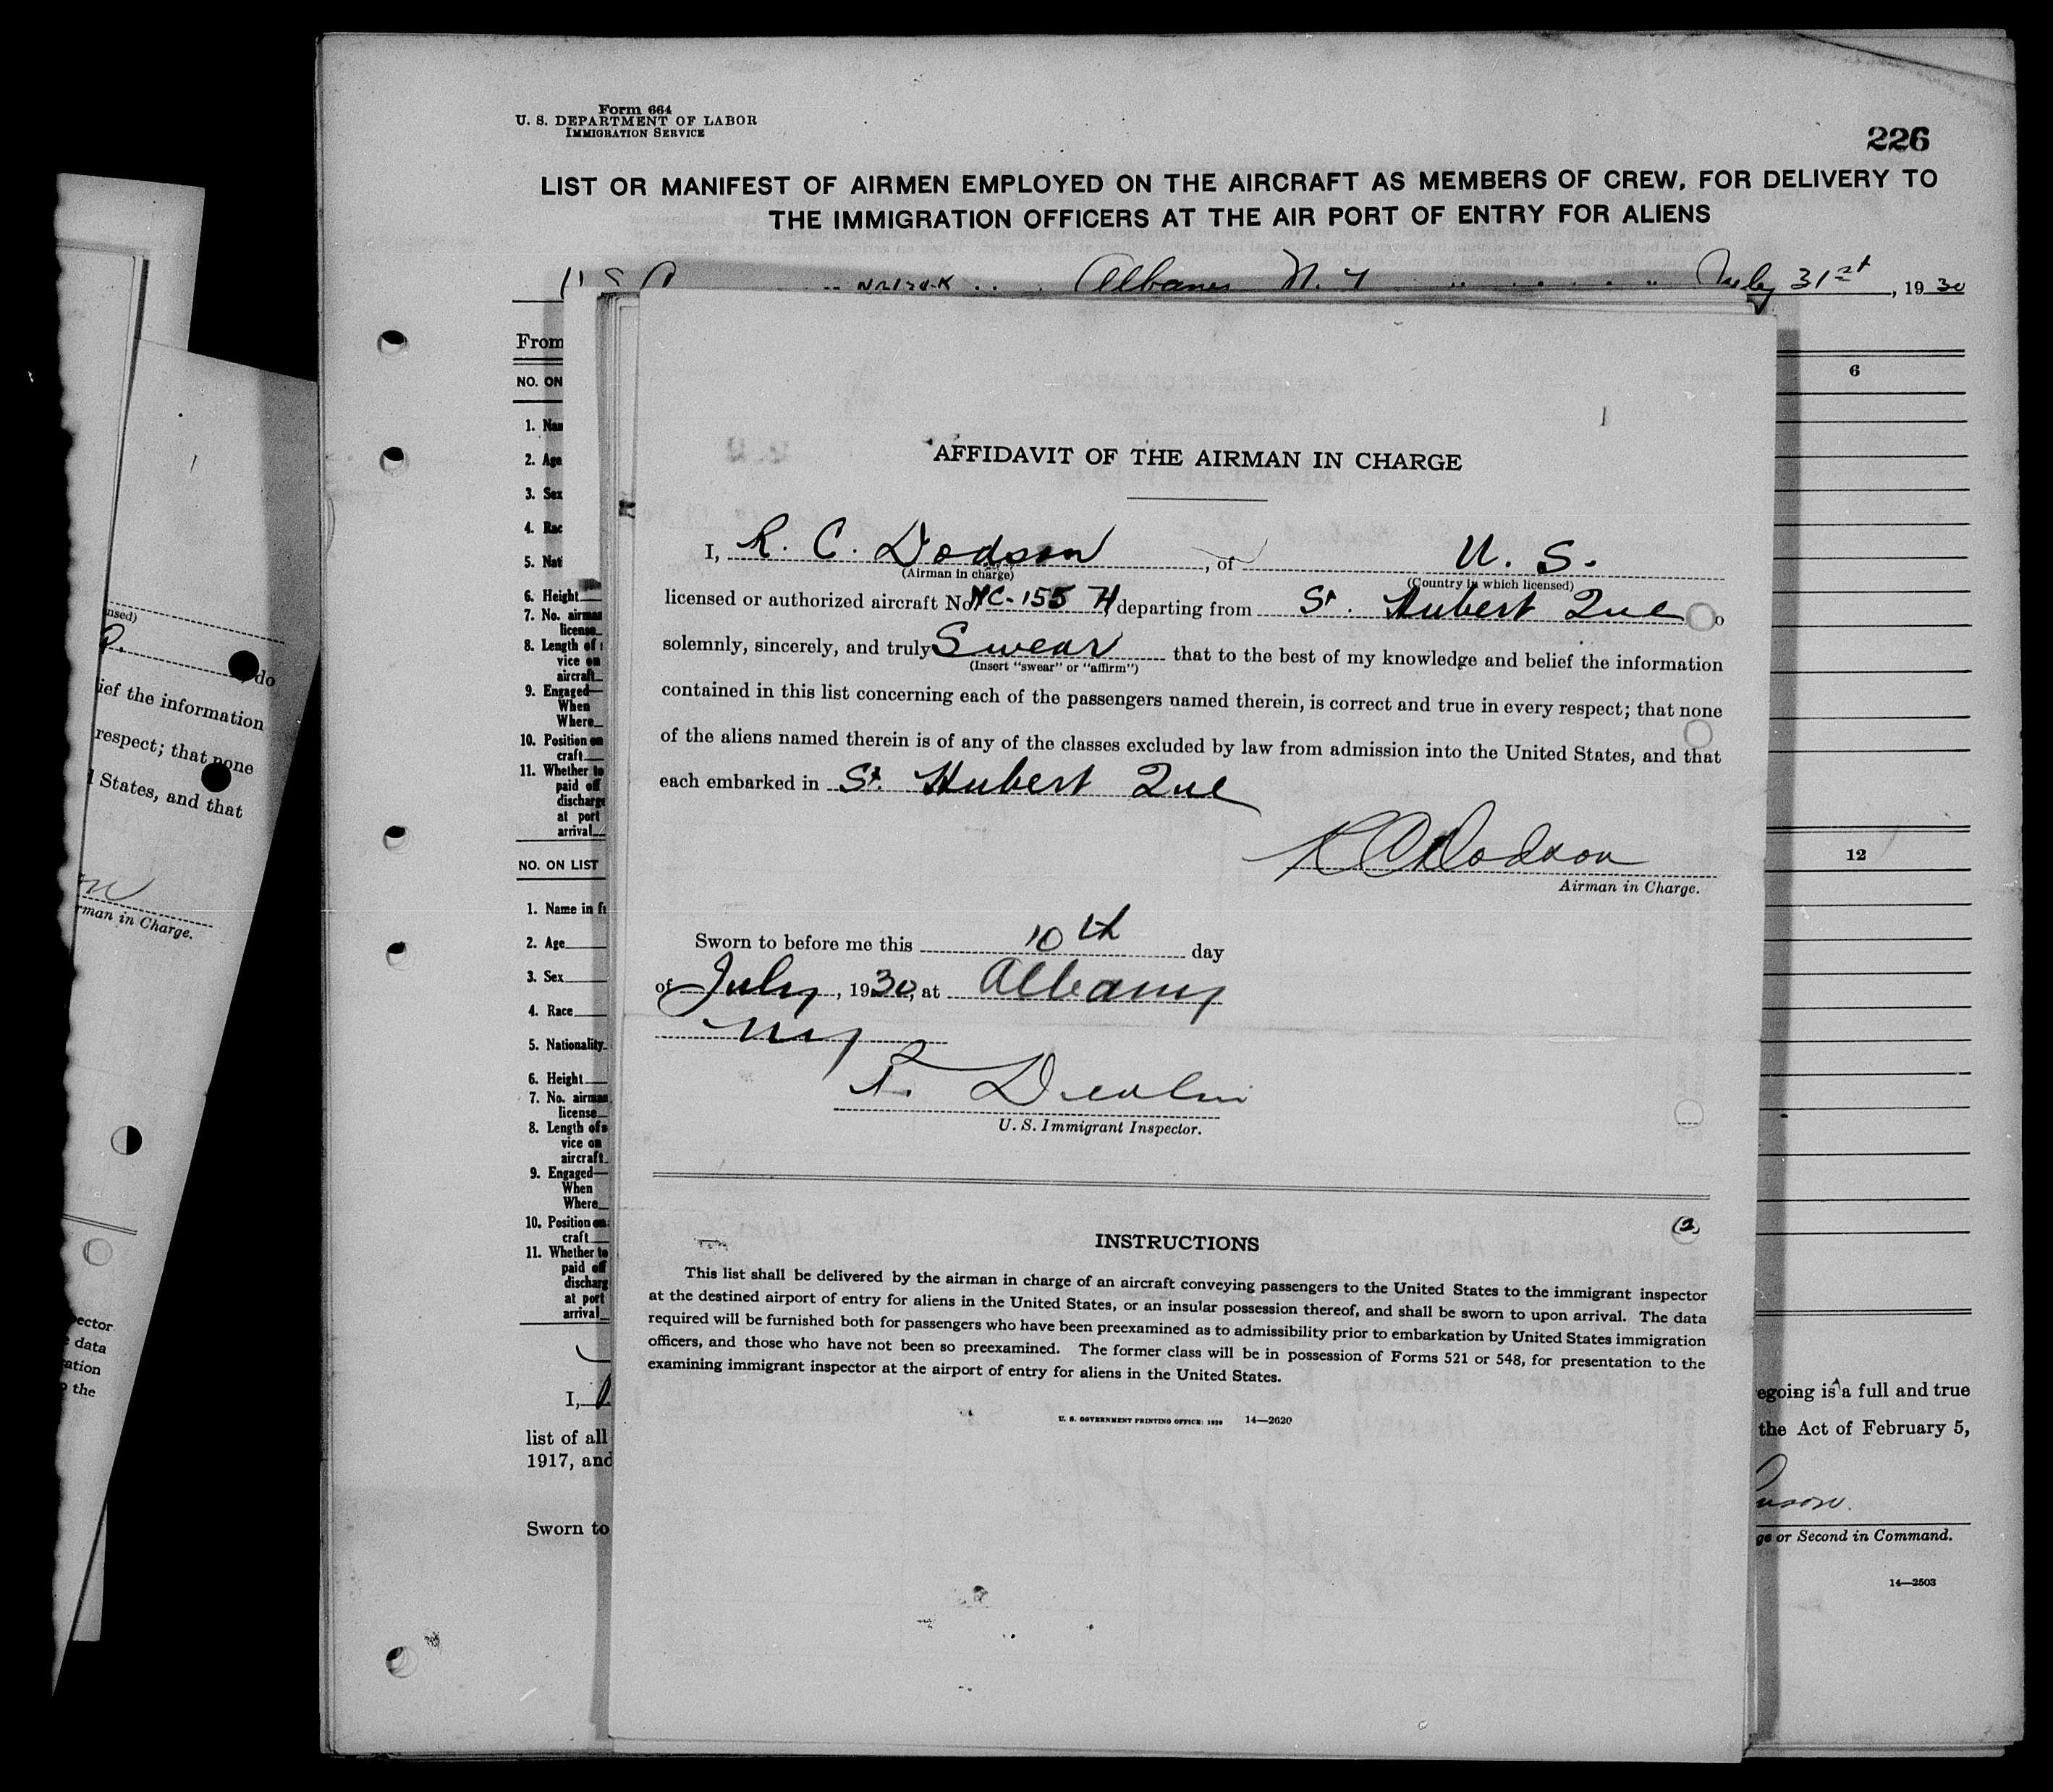 Form 664
U. S. DEPARTMENT OF LABOR
IMMIGRATION SERVICE
226
LIST OR MANIFEST OF AIRMEN EMPLOYED ON THE AIRCRAFT AS MEMBERS OF CREW, FOR DELIVERY TO
THE IMMIGRATION OFFICERS AT THE AIR PORT OF ENTRY FOR ALIENS
Albany N. Y July 31st, 1930
From
6
NO. ON
1. Nam
2. Age
3. Sex
4. Rac
5. Nati
6. Height
7. No. airman
license
8. Length of
vice on
aircraft
9. Engaged—
When
Where
10. Position on
craft
11. Whether to
paid off
discharge
at port
arrival
NO. ON LIST
12
1. Name in fu
2. Age
3. Sex
4. Race
5. Nationality
6. Height
7. No. airman
license
8. Length of s
vice on
aircraft
9. Engaged—
When
Where
10. Position on
craft
11. Whether to
paid off
discharg
at port
arrival
I,
egoing is a full and true
list of all
the Act of February 5,
1917, and
Sworn to
ge or Second in Command.
14—2503
AFFIDAVIT OF THE AIRMAN IN CHARGE
I, R. C. Dodson, of U. S.
(Airman in charge) (Country in which licensed)
licensed or authorized aircraft No. NC-155 H, departing from St. Hubert Que
solemnly, sincerely, and truly Swear that to the best of my knowledge and belief the information
(Insert "swear" or "affirm")
contained in this list concerning each of the passengers named therein, is correct and true in every respect; that none
of the aliens named therein is of any of the classes excluded by law from admission into the United States, and that
each embarked in St. Hubert Que
R C Dodson
Airman in Charge.
Sworn to before me this 10th day
of July, 1930, at Albany
NY
T. Devlin
U. S. Immigrant Inspector.
(2)
INSTRUCTIONS
This list shall be delivered by the airman in charge of an aircraft conveying passengers to the United States to the immigrant inspector
at the destined airport of entry for aliens in the United States, or an insular possession thereof, and shall be sworn to upon arrival. The data
required will be furnished both for passengers who have been preexamined as to admissibility prior to embarkation by United States immigration
officers, and those who have not been so preexamined. The former class will be in possession of Forms 521 or 548, for presentation to the
examining immigrant inspector at the airport of entry for aliens in the United States.
U. S. GOVERNMENT PRINTING OFFICE: 1929 14—2620
nsed)
do
ief the information
respect; that none
d States, and that
rman in Charge.
pector
e data
ation
o the